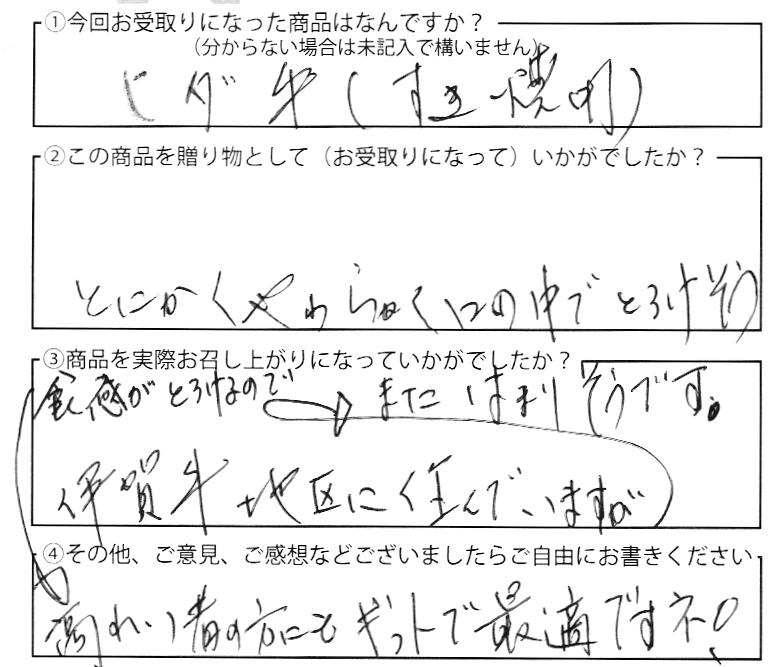 ①今回お受取りになった商品はなんですか？
（分からない場合は未記入で構いません）
ヒダ牛（すき焼用）
②この商品を贈り物として（お受取りになって）いかがでしたか？
とにかくやわらかく口の中でとろけそう
③商品を実際お召し上がりになっていかがでしたか？
食感がとろけるので またはまりそうです。
伊賀牛地区に住んでいますが
④その他、ご意見、ご感想などございましたらご自由にお書きください
高れい者の方にもギフトで最適ですネ!